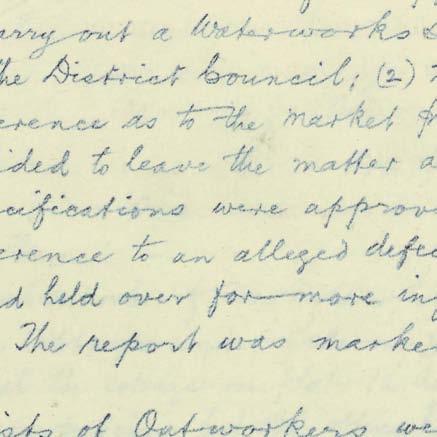 arry out a Waterworks S
the District Council; (2)
erence as to the market
ided to leave the matter a
cifications were approv
erence to an alleged defec
d held over for more in
The report was marke
ists of Outworkers we